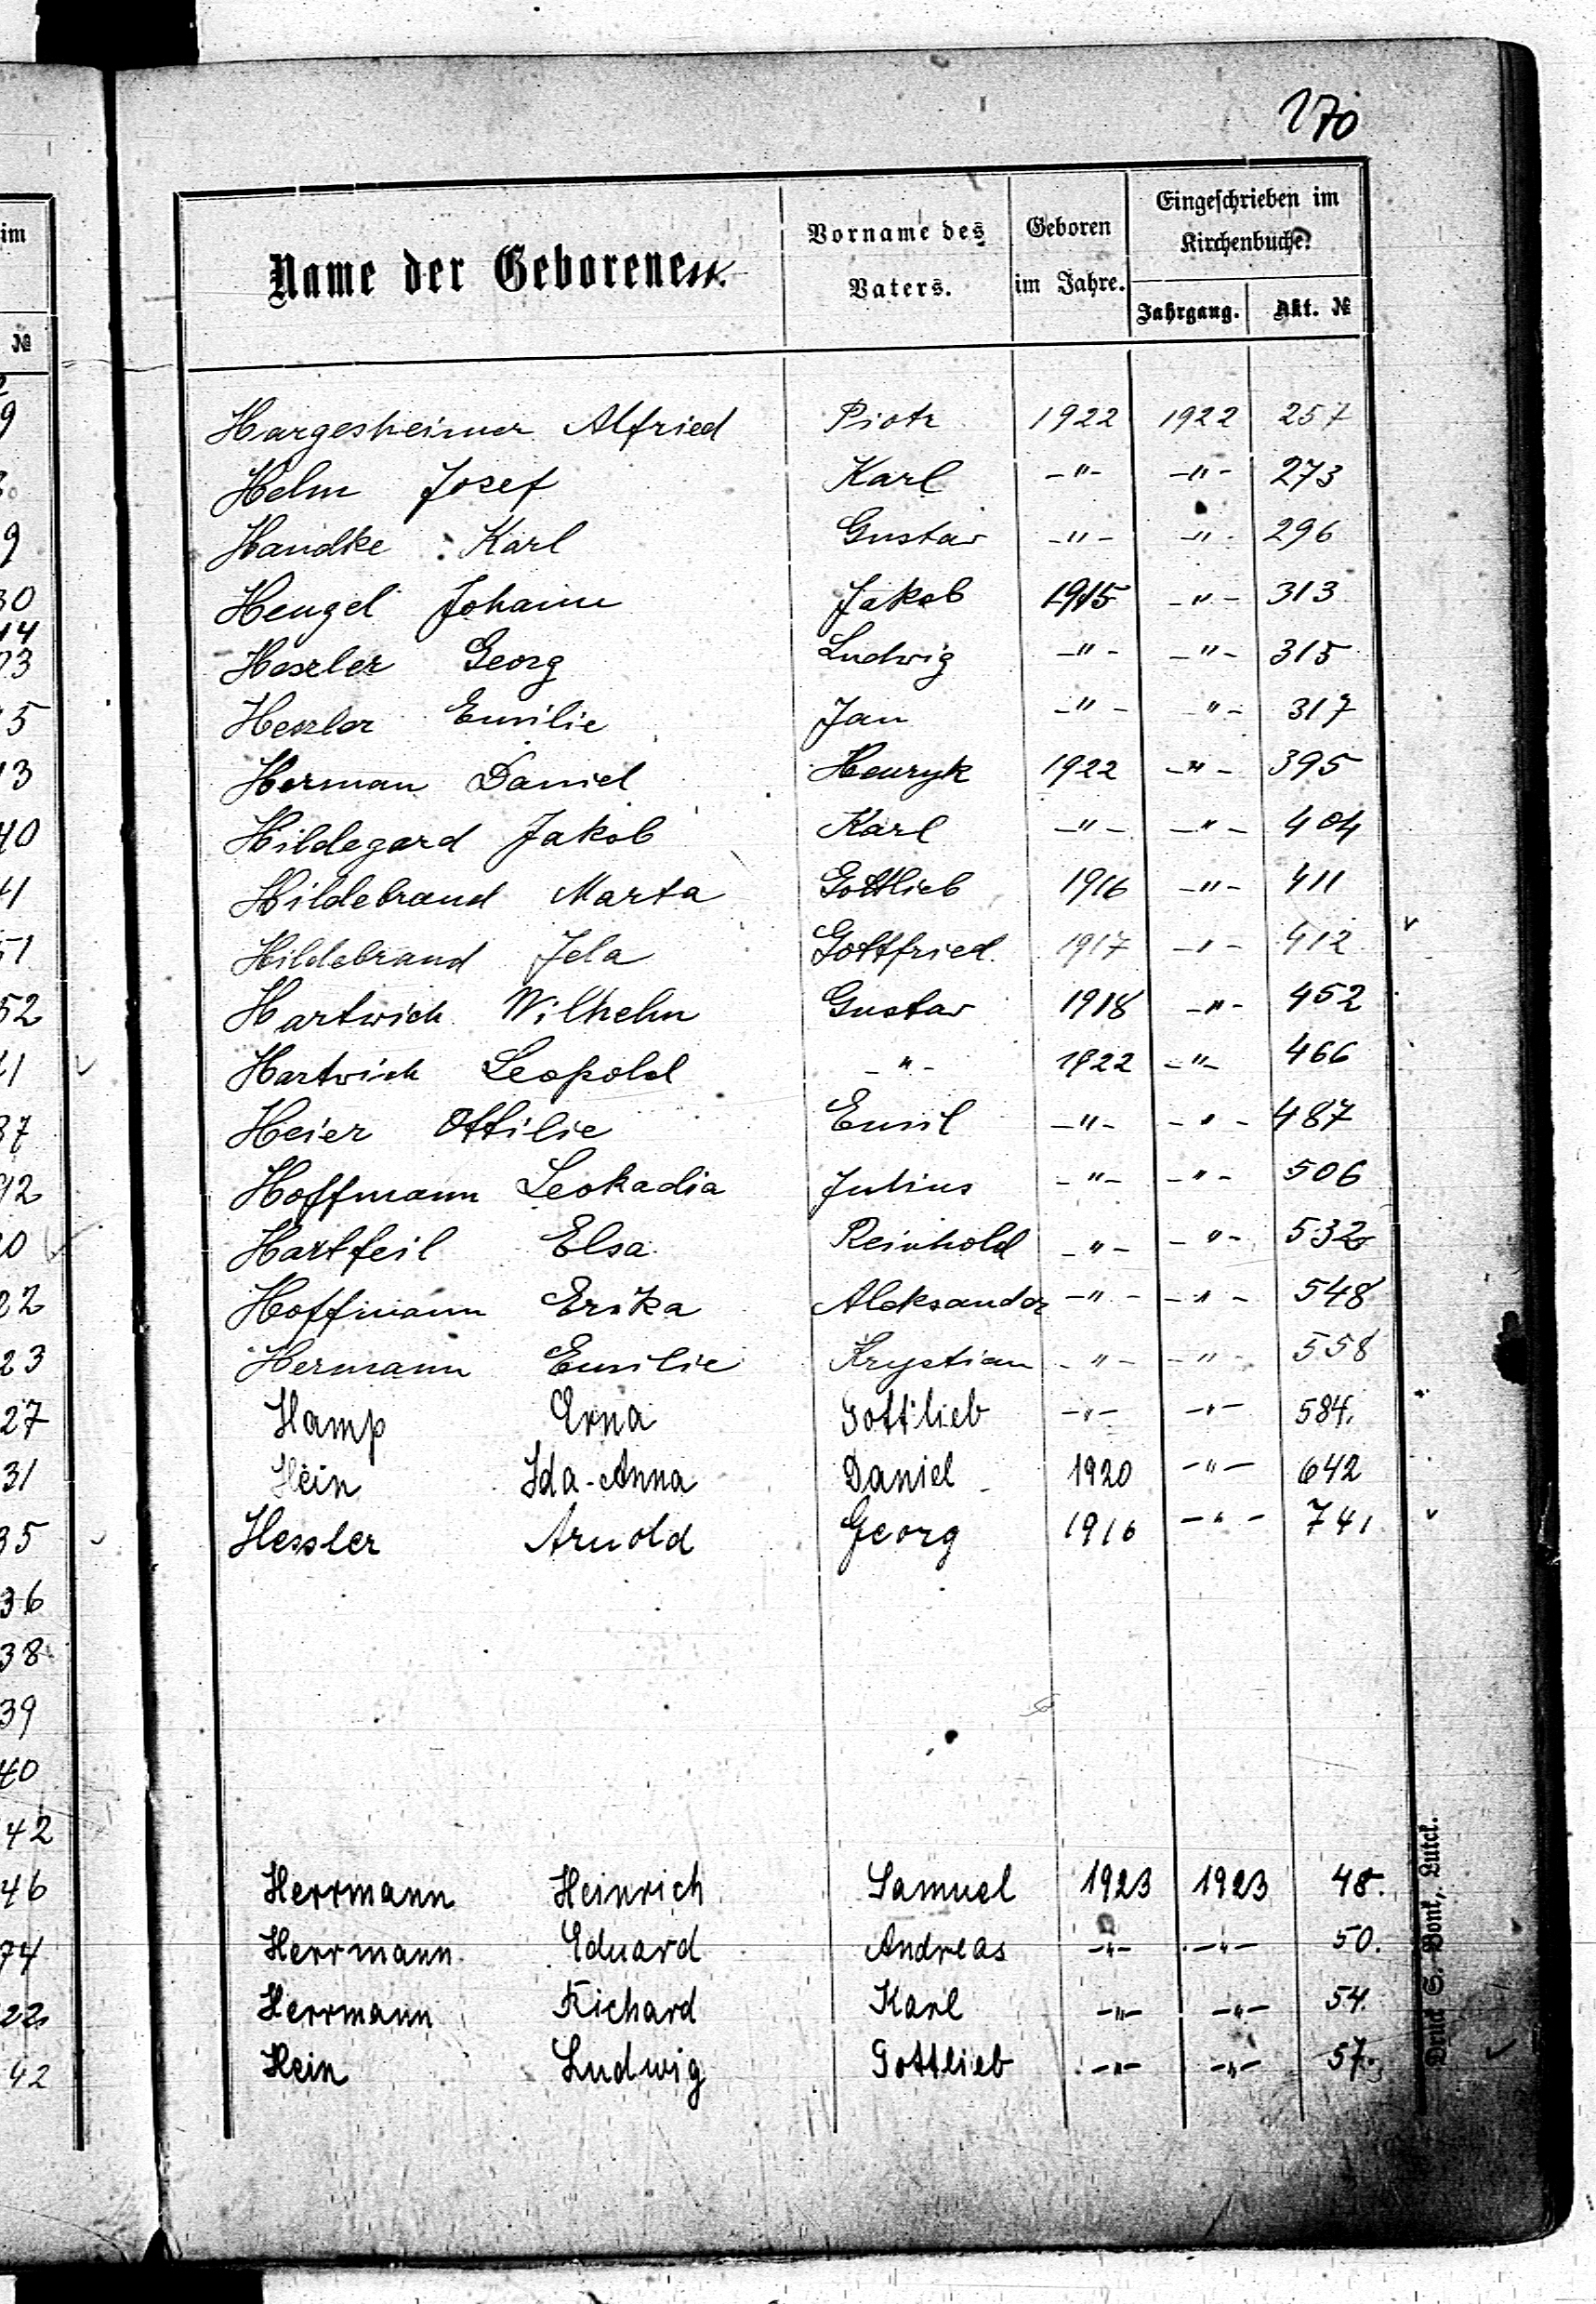 170
Name der Geborenen.
Vorname des Vaters.
Geboren im Jahre.
Eingeschrieben im Kirchenbuche.
Jahrgang. Akt. №
Hargesheimer Alfried Piotr 1922 1922 257
Helm Josef Karl -"- -"- 273
Handke Karl Gustav -"- -"- 296
Hengel Johann Jakob 1915 -"- 313
Heszler Georg Ludwig -"- -"- 315
Heszler Emilie Jan -"- -"- 317
Herman Daniel Henryk 1922 -"- 395
Hildegard Jakob Karl -"- -"- 404
Hildebrand Marta Gottlieb 1916 -"- 411
Hildebrand Jda Gottfried 1917 -"- 412
Hartwich Wilhelm Gustav 1918 -"- 452
Hartwich Leopold -"- 1922 -"- 466
Heier Ottilie Emil -"- -"- 487
Hoffmann Leokadia Julius -"- -"- 506
Hartfeil Elsa Reinhold -"- -"- 532
Hoffmann Erika Aleksander -"- -"- 548
Hermann Emilie Krystian -"- -"- 558
Hamp Erna Gottlieb -"- -"- 584.
Hein Ida-Anna Daniel 1920 -"- 642
Hessler Arnold Georg 1916 -"- 741
Herrmann Heinrich Samuel 1923 1923 48.
Herrmann Eduard Andreas -"- -"- 50.
Herrmann Richard Karl -"- -"- 54.
Hein Ludwig Gottlieb -"- -"- 57.
Druck S. Bonk, Lutck.
im
№